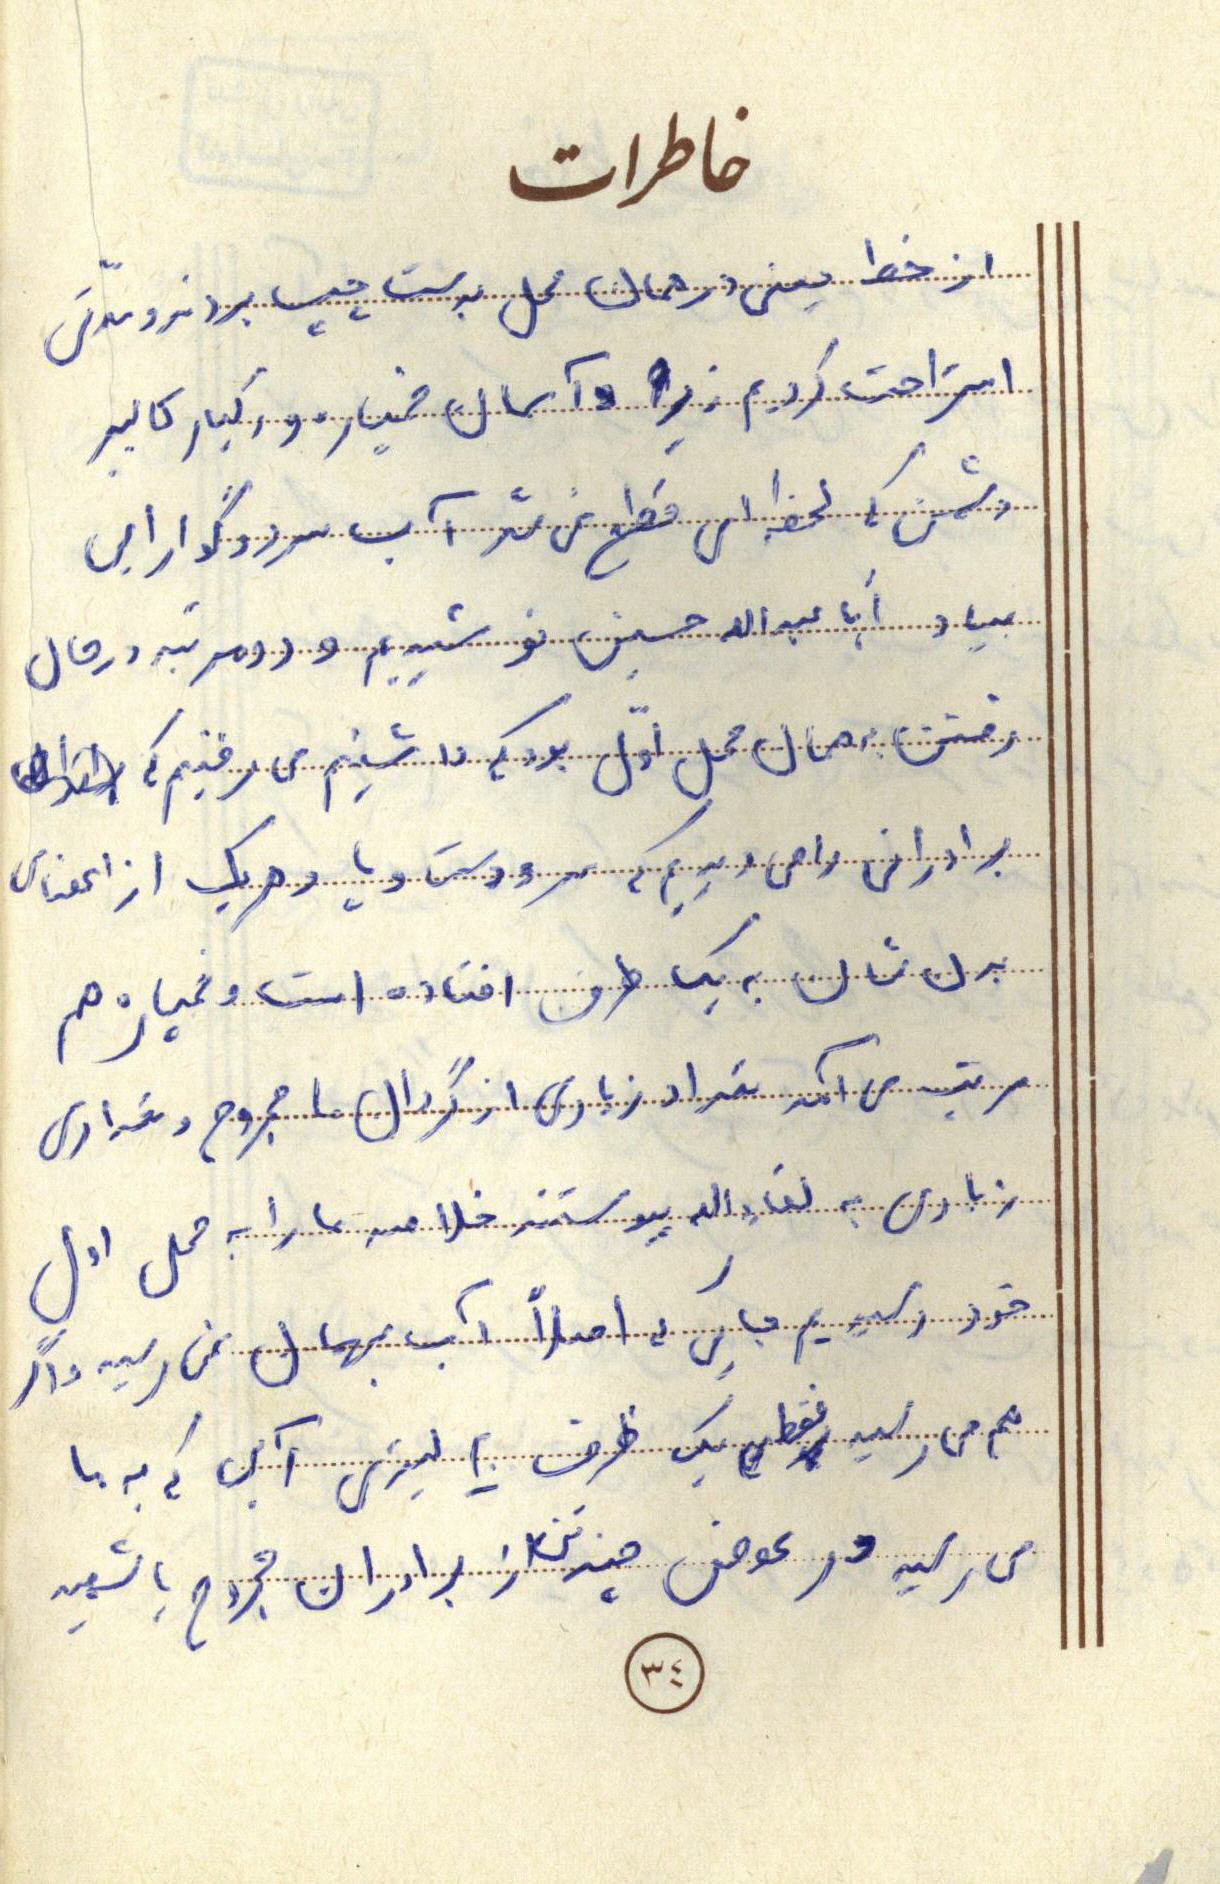 خاطرات
از خط یعنی در همان محل بدست چپ بردند و مدّتی
استراحت کردیم زیرا آسمان خمپاره و رگبار کالیبر
دشمن که لحظه‌ای قطع نمی شد آب سرد و گوارایی
بیاد أبا عبدالله حسین نوشیدیم و دومرتبه در حال
رفتن به همان محل اوّل بود که داشتیم می رفتیم که
برادرانی را می دیدیم که سر و دست و پا و هر یک از اعضای
بدن شان به یک طرف افتاده است و خمپاره هم
مرتب می آمد تعداد زیادی از گردان ما مجروح و تعدادی
زیادی به لقاء الله پیوستند خلاصه ما را به محل اول
خود رسیدیم جایی که اصلاً آب بهمان نمی رسید و اگر
هم می رسید فقط یک ظرف ۲۰ لیتری آبی که به ما
می رسید در عوض چند تن از برادران مجروح یا شهید
٣٤